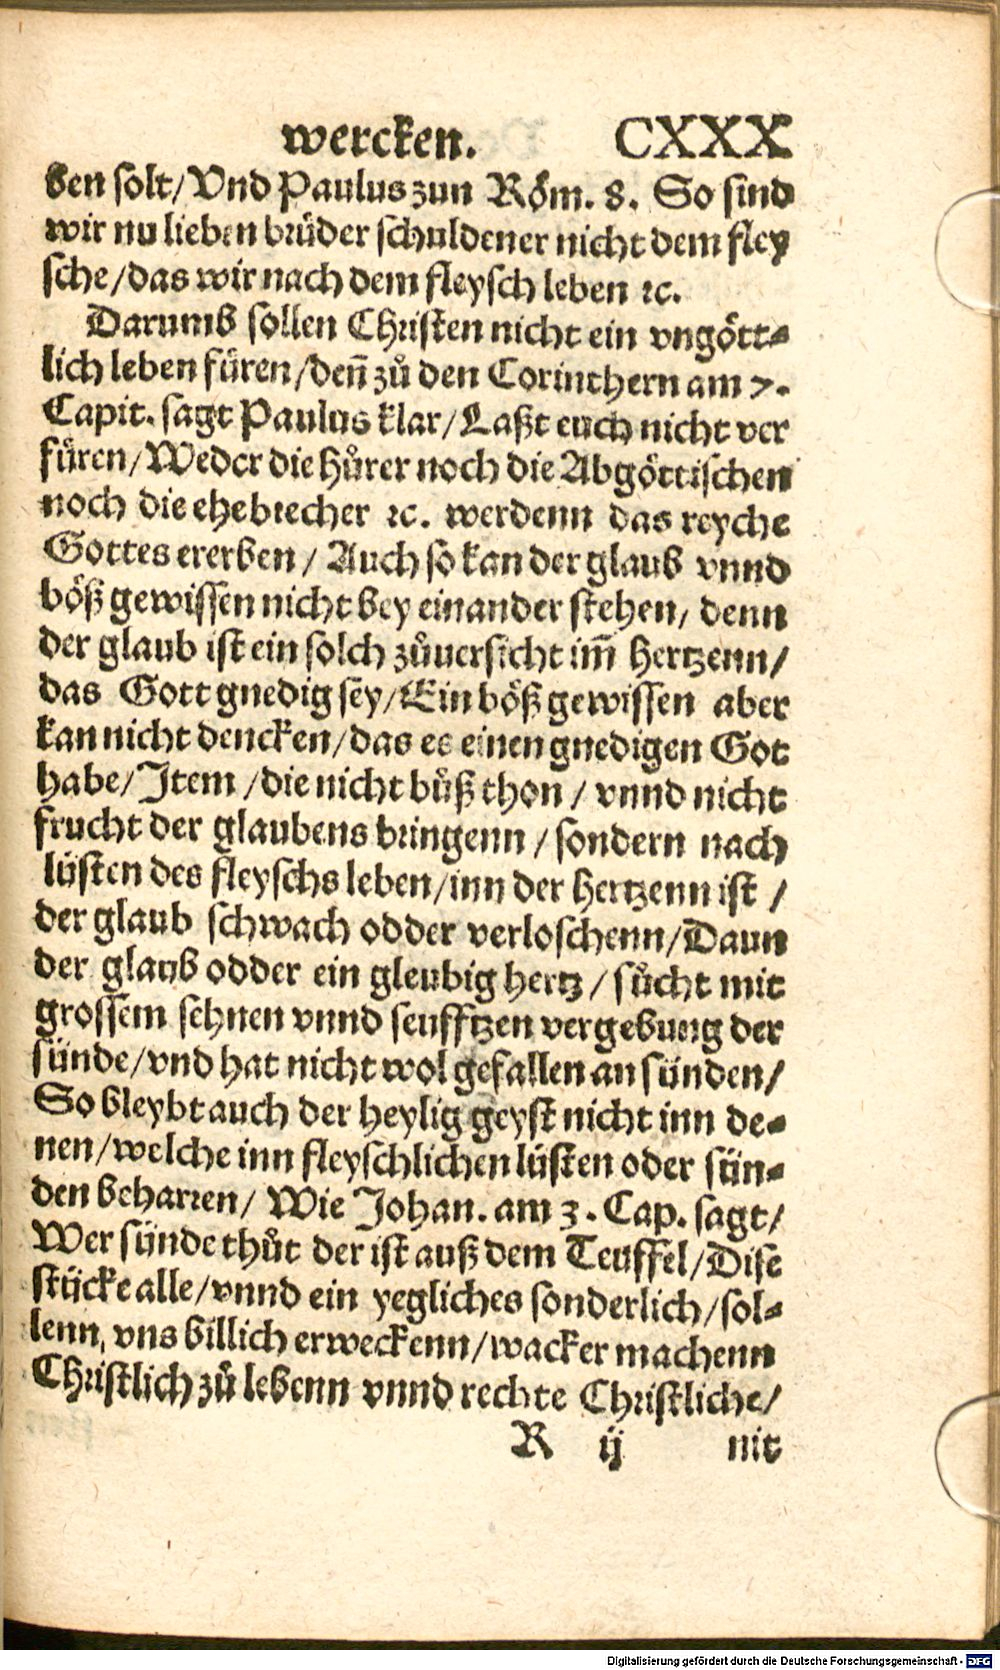 wercken. CXXX
ben solt/ Vnd Paulus zun Röm. 8. So sind
wir nu lieben brüder schuldener nicht dem fley
sche/das wir nach dem fleysch leben ꝛc.
Darumb sollen Christen nicht ein vngött-
lich leben füren/denñ zů den Corinthern am 7.
Capit. sagt Paulus klar/ Laßt euch nicht ver
füren/ Weder die hůrer noch die Abgöttischen
noch die ehebrecher ꝛc. werdenn das reyche
Gottes ererben/ Auch so kan der glaub vnnd
böß gewissen nicht bey einander stehen, denn
der glaub ist ein solch zůuersicht im̃ hertzenn/
das Gott gnedig sey/ Ein böß gewissen aber
kan nicht dencken/das es einen gnedigen Got
habe/ Item /die nicht bůß thon/ vnnd nicht
frucht der glaubens bringenn/sondern nach
lüsten des fleyschs leben/inn der hertzenn ist /
der glaub schwach odder verloschenn/Dann
der glaub odder ein gleubig hertz/ sůcht mit
grossem sehnen vnnd seufftzen vergebung der
sünde/vnd hat nicht wol gefallen an sünden/
So bleybt auch der heylig geyst nicht inn de-
nen/welche inn fleyschlichen lüsten oder sün-
den beharren/ Wie Johan. am 3. Cap. sagt/
Wer sünde thůt der ist auß dem Teuffel/Dise
stücke alle/vnnd ein yegliches sonderlich/sol-
lenn, vns billich erweckenn/wacker machenn
Christlich zů lebenn vnnd rechte Christliche/
R ij nit
Digitalisierung gefördert durch die Deutsche Forschungsgemeinschaft - DFG